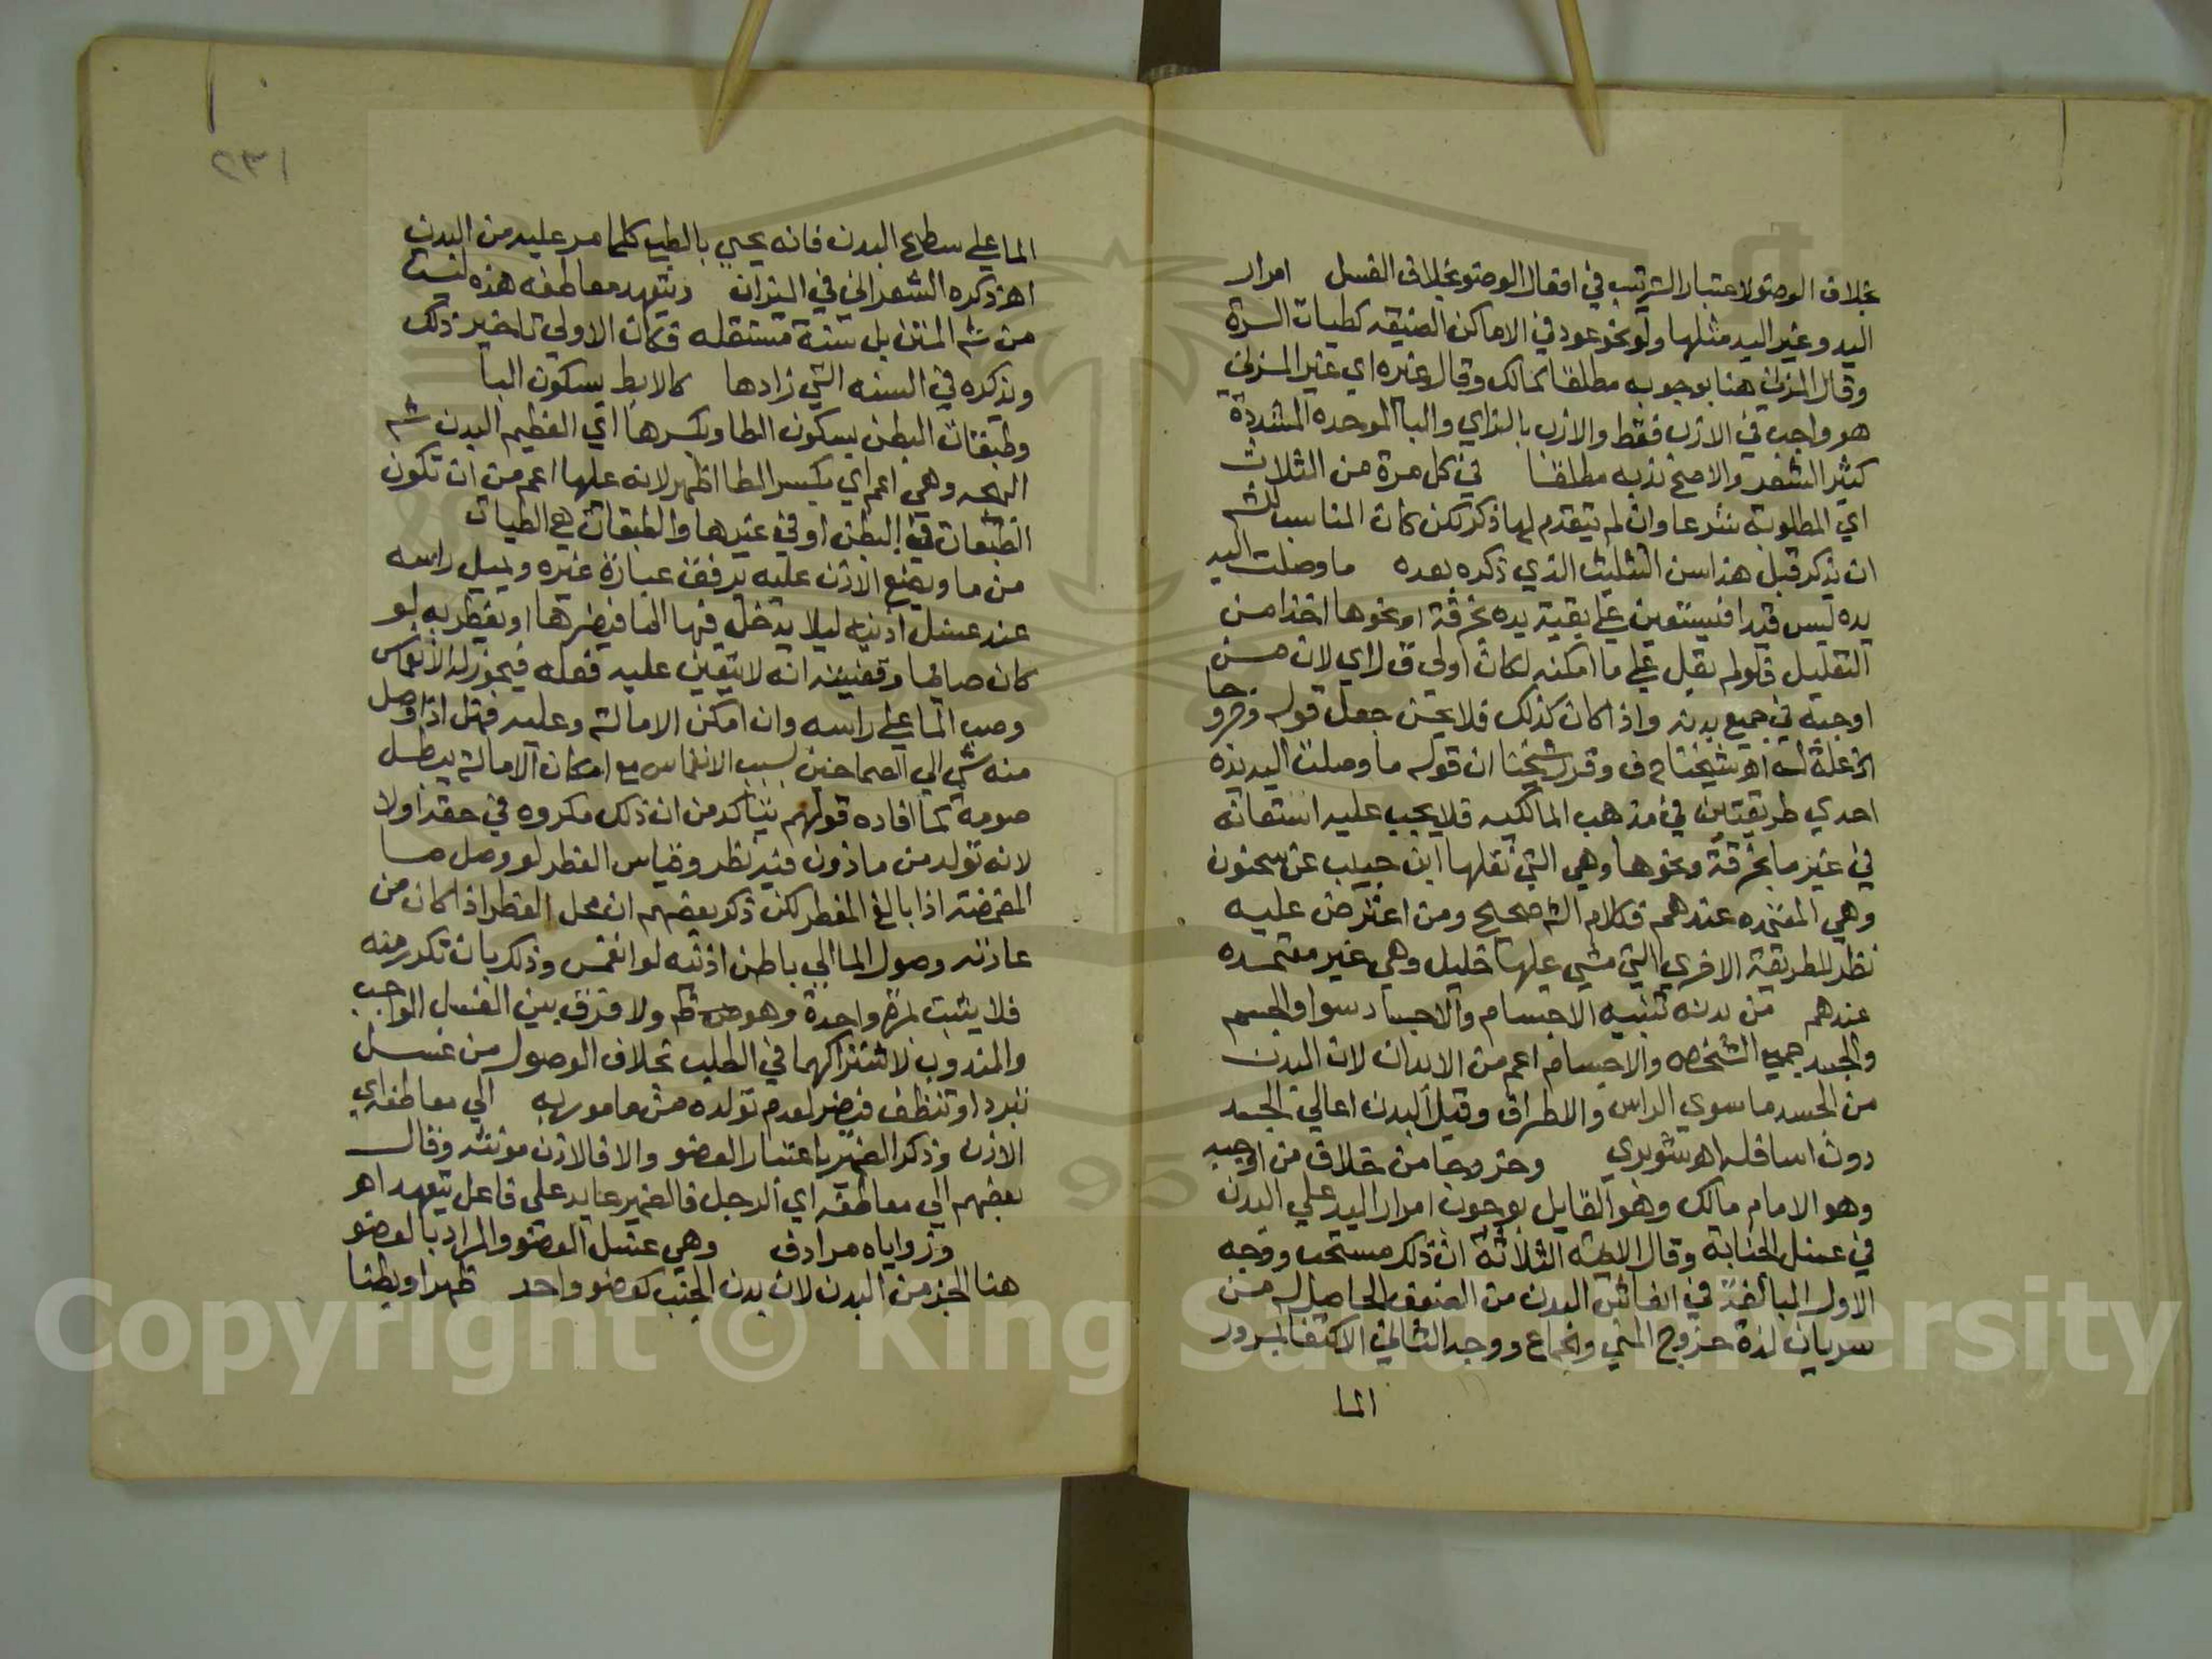 بخلاف الوضو لاعتبار الترتيب في افعال الوضو بخلاف الغسل امرار
اليد وغير اليد مثلها ولو نحو عود في الاماكن الضيقه كطيات السرة
وقال المزني هنا بوجوبه مطلقا كمالك وقال غيره اي غير المزني
هو واجب في الازب فقط والازب بالزاي والبا الموحده المشددة
كثير الشعر والاصح ندبه مطلقا في كل مرة من الثلاث
اي المطلوبة شرعا وان لم يتقدم لها ذكر لكن كان المناسب للشم
ان يذكر قبل هذا سن التثليث الذي ذكره بعده ما وصلت اليه
يده ليس قيدا فيستعين علي بقية يده بخرقة او نحوها اخذا من
التعليل فلو لم يقل علي ما امكنه لكان اولى ق ل اي لان من
اوجبه في جميع بدنه واذا كان كذلك فلا يحسن جعل قوله وخروجا
الخ علة له اه شيخنا ح ف وقرر شيخنا ان قوله ما وصلت اليه يده
احدي طريقتين في مذهب المالكيه فلا يجب عليه استعانه
في غيرها بخرقة ونحوها وهي التي نقلها ابن حبيب عن سحنون
وهي المعتمده عندهم فكلام الشم صحيح ومن اعترض عليه
نظر للطريقة الاخري التي مشي عليها خليل وهي غير معتمده
عندهم من بدنه تنبيه الاجسام والاجساد سوا والجسم
والجسد جميع الشخص والاجسام اعم من الابدان لان البدن
من الجسد ما سوي الراس والاطراف وقيل البدن اعالي الجسد
دون اسافله اه شوبري وخروجا من خلاف من اوجبه
وهو الامام مالك وهو القايل بوجوب امرار اليد علي البدن
في غسل الجنابة وقال الايمة الثلاثة ان ذلك مستحب ووجه
الاول المبالغة في انعاش البدن من الضعف الحاصل له من
سريان لذة خروج المني والجماع ووجه الثاني الاكتفا بمرور
الما
٢٣١
الما علي سطح البدن فانه يحيي بالطبع كلما مر عليه من البدن
اه ذكره الشعراني في الميزان ويتعهد معاطفه هذه ليست
من شم المتن بل سنة مستقله فكان الاولي تاخير ذلك
ويذكره في السنه التي زادها كالابط بسكون البا
وطبقات البطن بسكون الطا وبكسرها اي العظيم البدن شم
البهجه وهي اعم اي بكسر الطا اظهر لانه عليها اعم من ان تكون
الطبقات في البطن او في غيرها والطبقات هي الطيات
من ما ويضع الاذن عليه برفق عبارة غيره ويميل راسه
عند غسل اذنيه ليلا يدخل فيها الما فيضرها او يفطر به لو
كان صايما وقضيته انه لا يتعين عليه فعله فيجوز له الانغماس
وصب الما علي راسه وان امكن الامالة وعليه فهل اذا وصل
منه شي الي الصماخين بسبب الانغماس مع امكان الامالة يبطل
صومه كما افاده قولهم يتاكد من ان ذلك مكروه في حقه او لا
لانه تولد من ماذون فيه نظر وقياس الفطر لو وصل ما
المضمضة اذا بالغ الفطر لكن ذكر بعضهم ان محل الفطر اذا كان من
عادته وصول الما الي باطن اذنيه لو انغمس وذلك بان تكرر منه
فلا يثبت لمرة واحدة وهو ظم ولا فرق بين الغسل الواجب
والمندوب لاشتراكهما في الطلب بخلاف الوصول من غسل
تبرد او تنظف فيضر لعدم تولده من مامور به الي معاطفه اي
الاذن وذكر الضمير باعتبار العضو والا فالاذن مونثه وقال
بعضهم الي معاطفه اي الرجل فالضمير عايد علي فاعل يتعهد اه
وزواياه مرادف وهي غسل العضو والمراد بالعضو
هنا الجز من البدن لان بدن الجنب كعضو واحد ظهرا وبطنا
Copyright © King Saud University